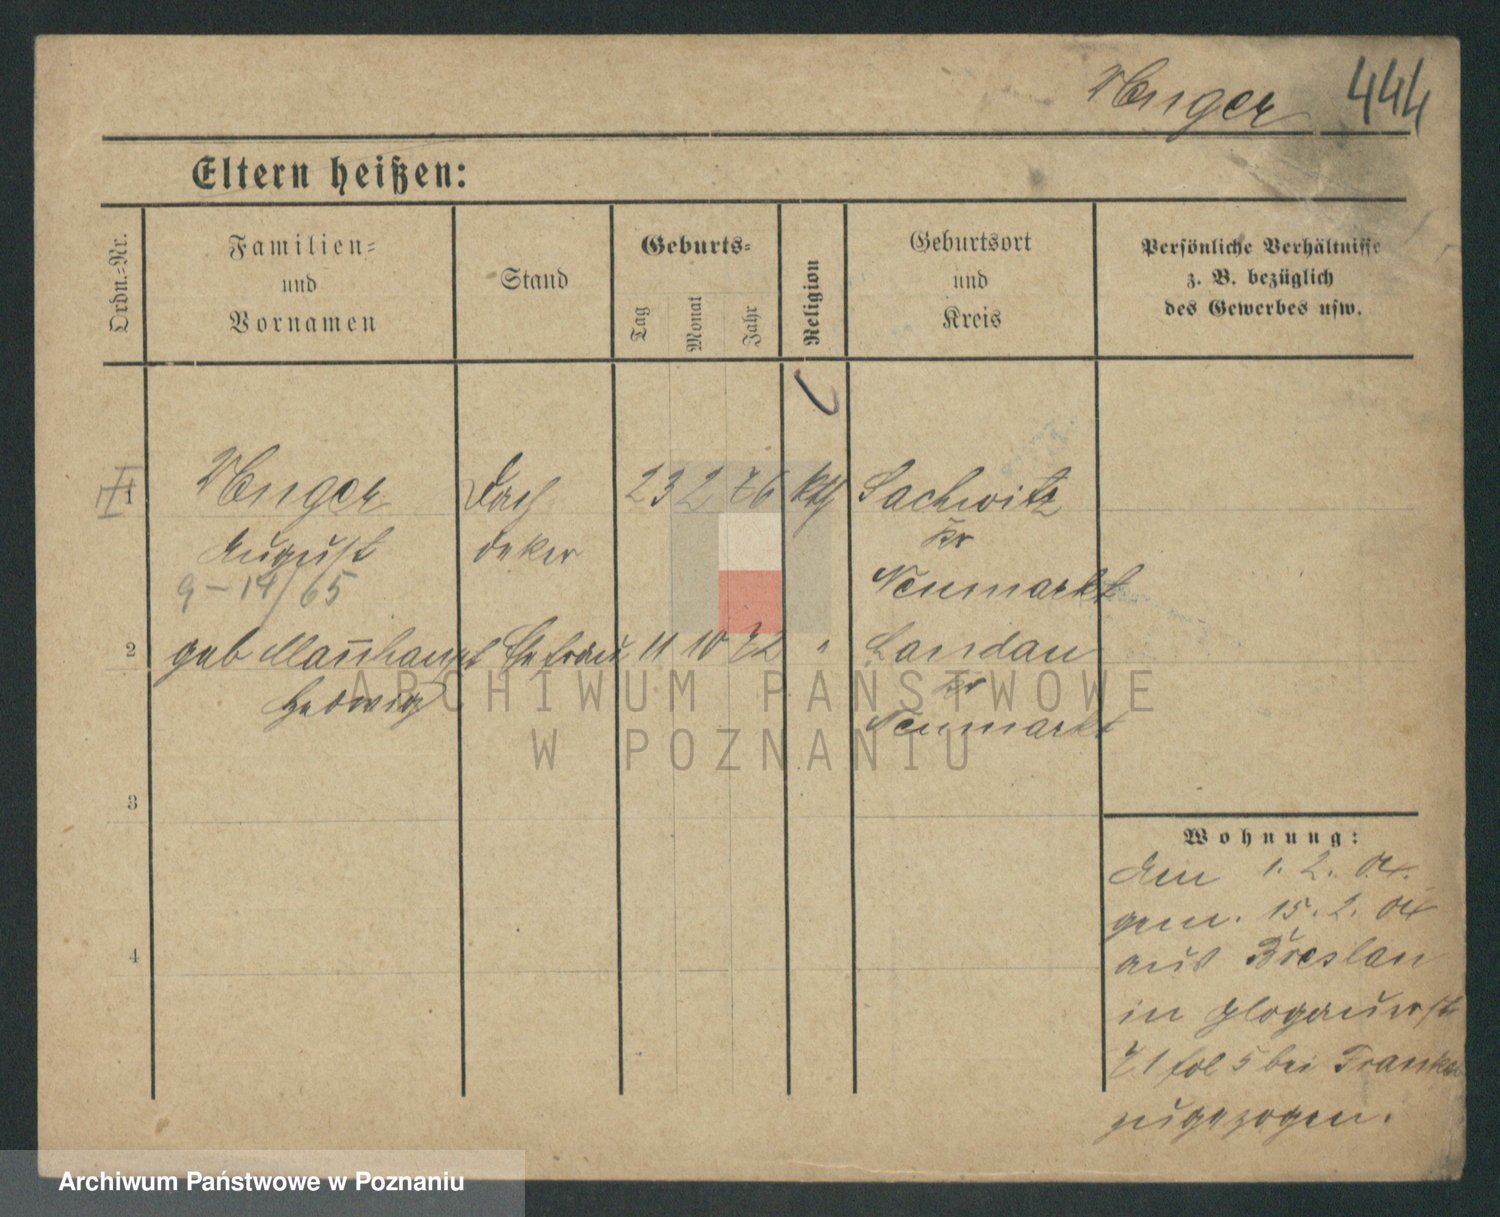 Wenger 444
Eltern heißen:
Ordn.=Nr.
Familien=
und
Vornamen
Stand
Geburts=
Tag
Monat
Jahr
Religion
Geburtsort
und
Kreis
Persönliche Verhältnisse
z. B. bezüglich
des Gewerbes usw.
1 Wenger Dach 23 2 76 kth Sachwitz
August deker Kr
9-14/65 Neumarkt
2 geb Mannhaupt Ehefrau 11 10 72 " Landau
Hedwig Kr
Neumarkt
3
4
Wohnung:
Am 1. 2. 04.
gem. 15. 2. 04
aus Breslau
in Glogauerstr
71 fol 5 bei Franke
zugezogen.
ARCHIWUM PAŃSTWOWE
W POZNANIU
Archiwum Państwowe w Poznaniu